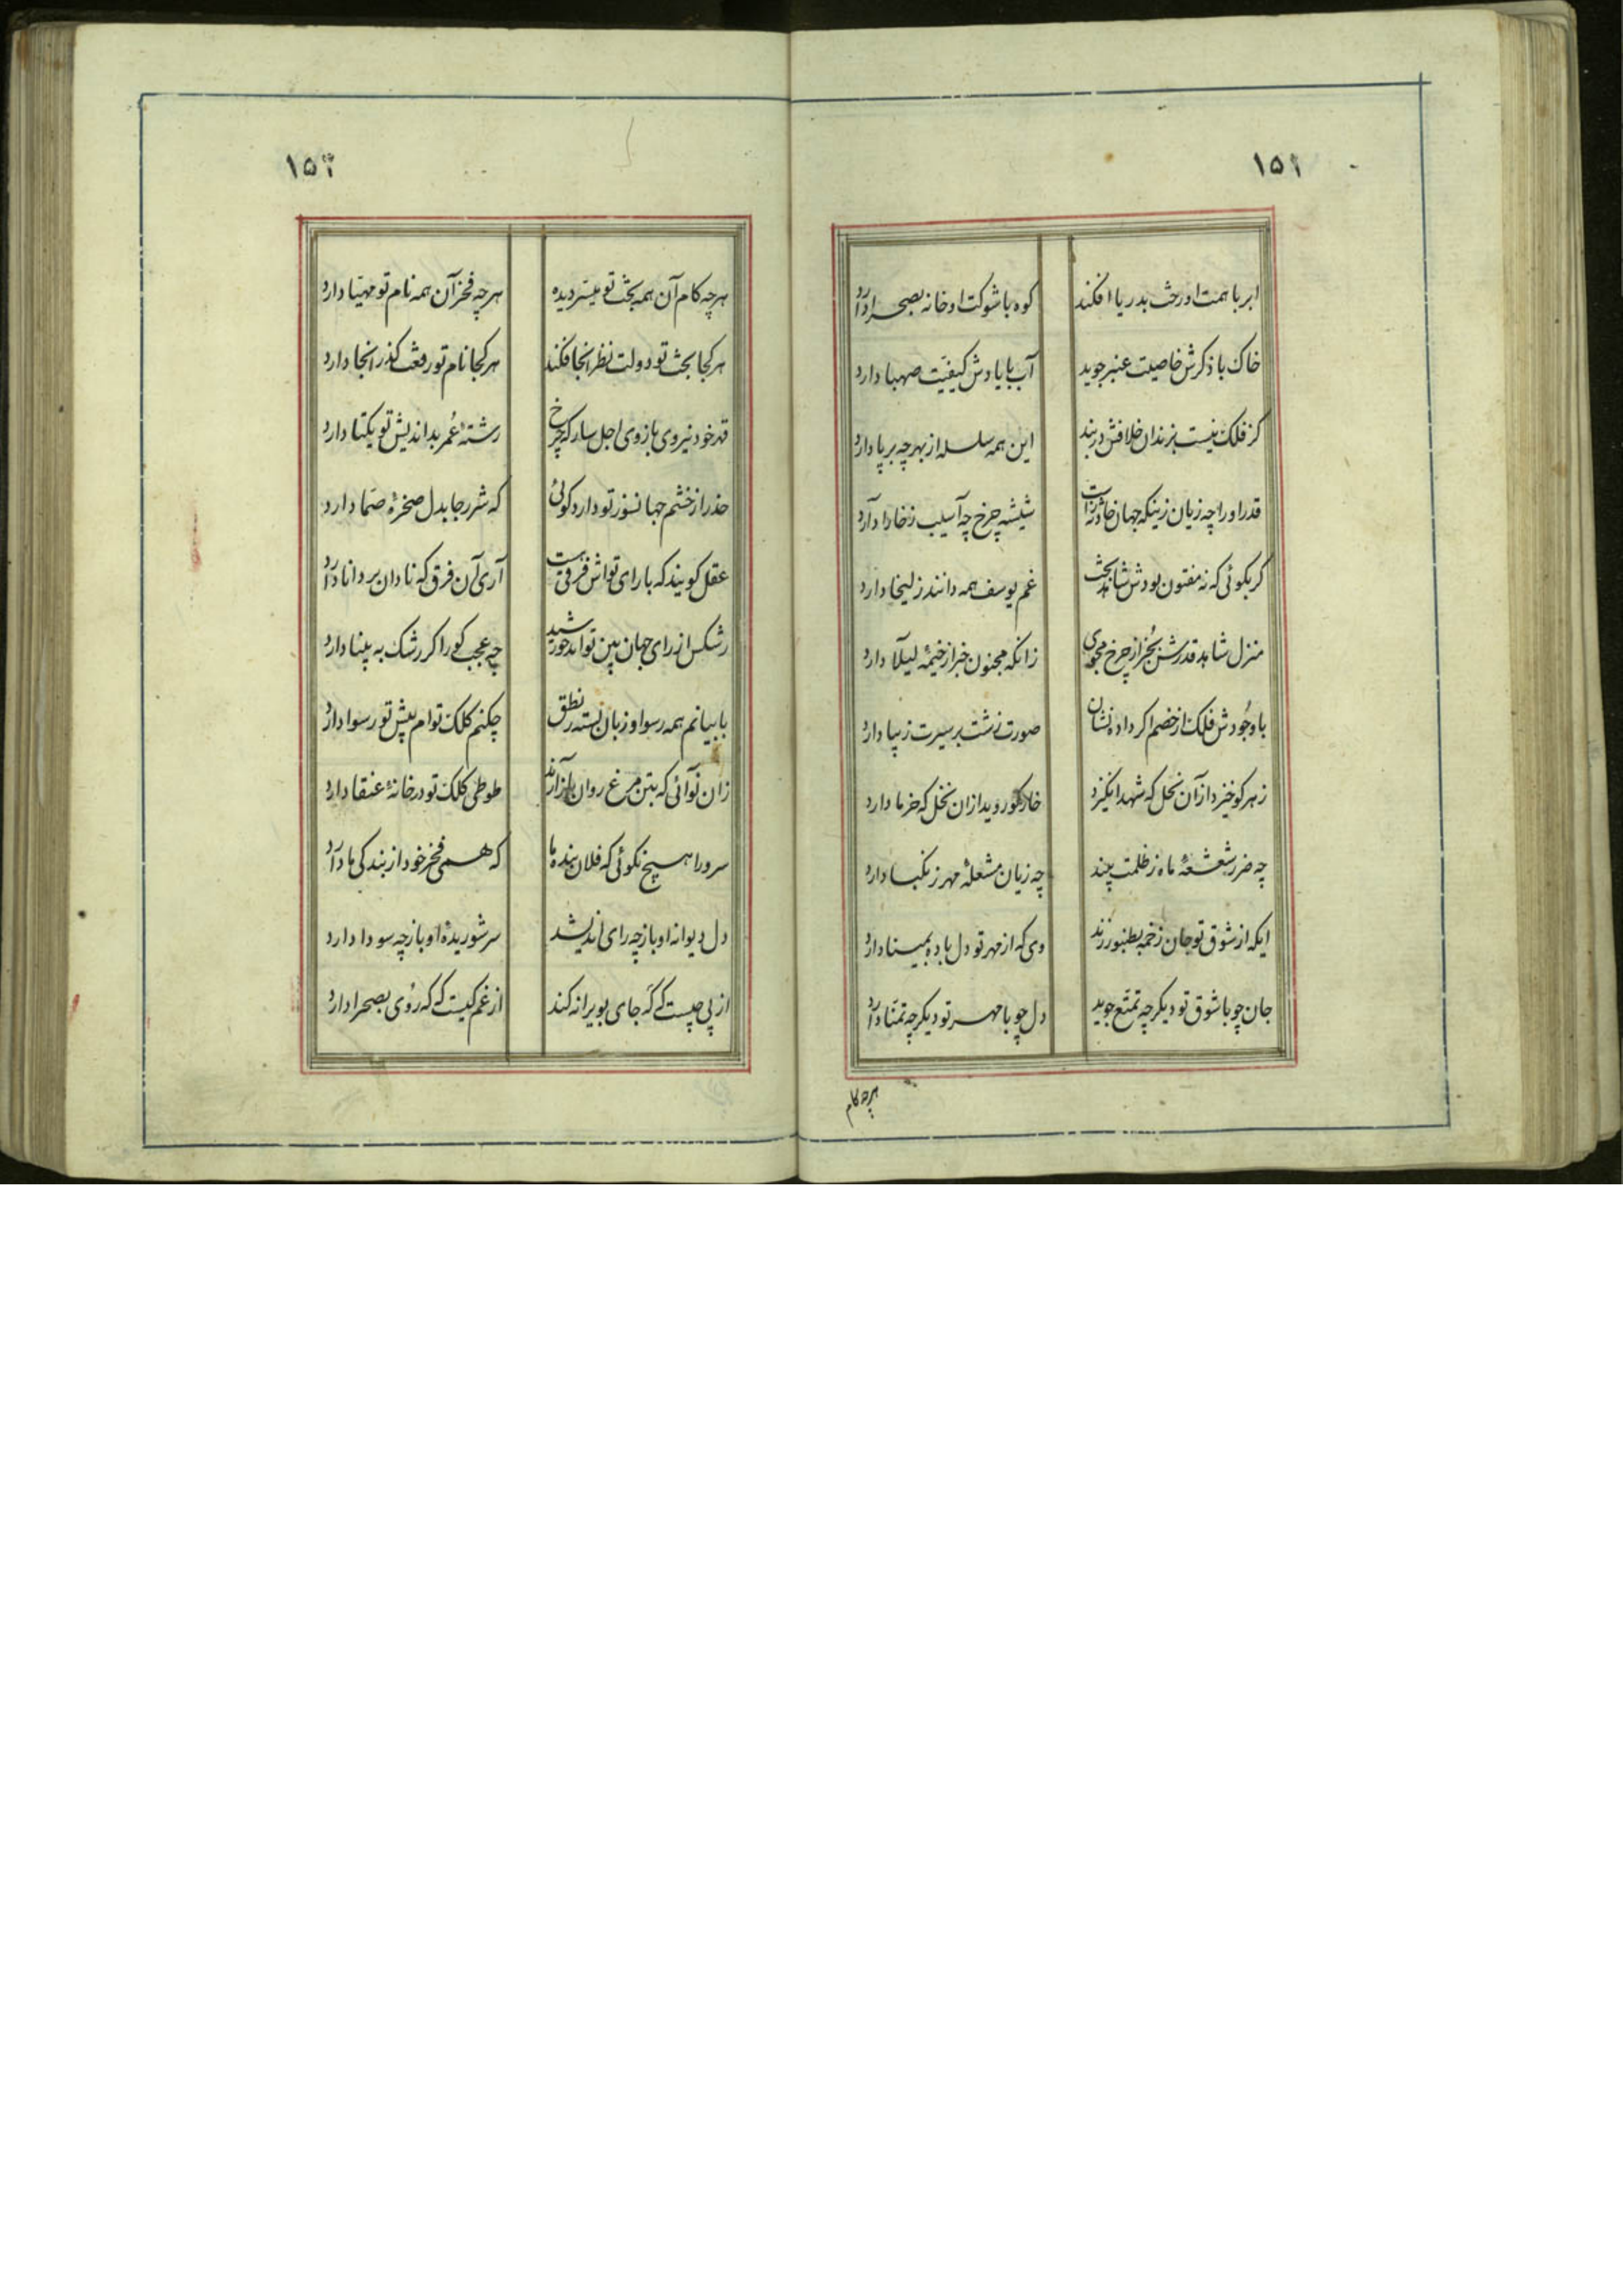 ۱۵۱
ابر با همت او رخت بدریا افکند
کوه با شوکت او خانه بصحرا دارد
خاک با ذکرش خاصیت عنبر جوید
آب با یادش کیفیّت صهبا دارد
کز فلک نیست بزندان خلافش در بند
این همه سلسله از بهر چه بر پا دارد
قدر او را چه زیان زینکه جهان حادثه زاست
شیشه چرخ چه آسیب ز خارا دارد
کر بکوئی که نه مفتون بودش شاهد بخت
غم یوسف همه دانند زلیخا دارد
منزل شاهد قدرش بجز از چرخ مجوی
زانکه مجنون خبر از خیمهٔ لیلا دارد
با وجودش فلک از خصم اکر داد نشان
صورت زشت بر سیرت زیبا دارد
زهر کو خیزد از آن نحل که شهد انکیزد
خار کو روید ازان نخل که خرما دارد
چه ضرر شعشعهٔ ماه ز ظلمت بیند
چه زیان مشعلهٔ مهر ز نکبا دارد
ایکه از شوق تو جان زخمه بطنبور زند
وی که از مهر تو دل باده بمینا دارد
جان چو با شوق تو دیکر چه تمتّع جوید
دل چو با مهر تو دیکر چه تمنّا دارد
هرچه کام
۱۵۲
هرچه کام آن همه بخت تو میسّر دیده
هرچه فخر آن همه نام تو مهیّا دارد
هر کجا بخت تو دولت نظر آنجا فکند
هر کجا نام تو رفعت کذر آنجا دارد
قهر خود نیروی بازوی اجل ساز که چرخ
رشتهٔ عُمر بداندیش تو یکتا دارد
حذر از خشم جهانسوز تو دارد کوئی
که شرر جا بدل صخرهٔ صمّا دارد
عقل کویند که با رای تواش فرقی هست
آری آن فرق که نادان بر دانا دارد
رشکش از رای جهان بین تو آمد خورشید
چه عجب کور اکر رشک به بینا دارد
با بیانم همه رسوا و زبان بسته ز نطق
چکنم کلک توام پیش تو رسوا دارد
زان نوآئی که بتن مرغ روان باز آرند
طوطی کلک تو در خانهٔ عنقا دارد
سرورا هیچ نکوئی که فلان بنده ما
که همی فخر خود از بندکی ما دارد
دل دیوانه او باز چه رای اندیشد
سر شوریدهٔ او باز چه سودا دارد
از پی چیست که که جای بویرانه کند
از غم کیست که که رُوی بصحرا دارد